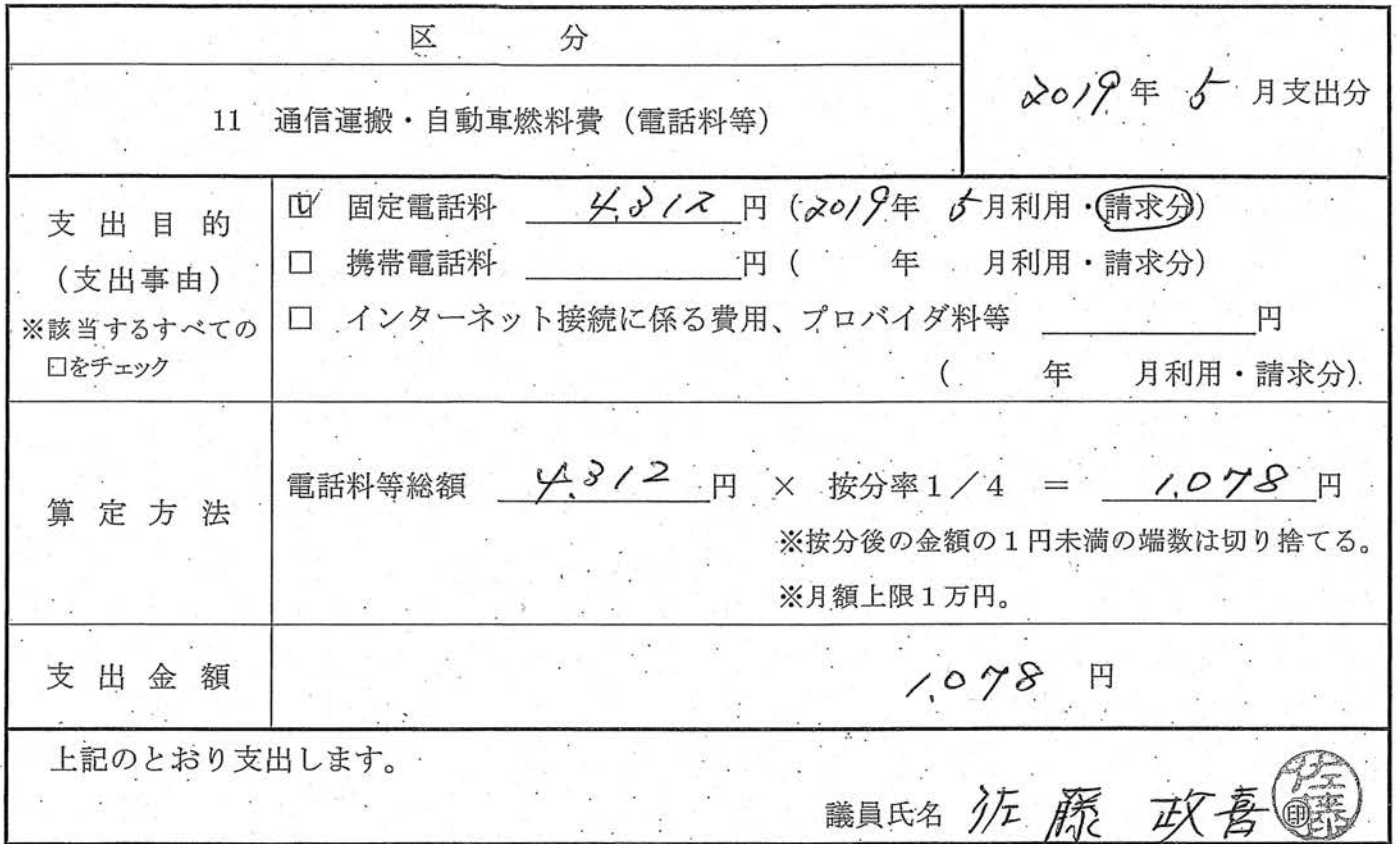 区 分
11 通信運搬・自動車燃料費（電話料等）
2019年 5 月支出分
支出目的
（支出事由）
※該当するすべての
□をチェック
☑ 固定電話料 4,312円（2019年 5月利用・請求分）
□ 携帯電話料 円（ 年 月利用・請求分）
□ インターネット接続に係る費用、プロバイダ料等 円
（ 年 月利用・請求分）
算定方法
電話料等総額 4,312円 × 按分率1／4 ＝ 1,078円
※按分後の金額の1円未満の端数は切り捨てる。
※月額上限1万円。
支出金額
1,078 円
上記のとおり支出します。
議員氏名 佐藤 政喜 印
佐藤